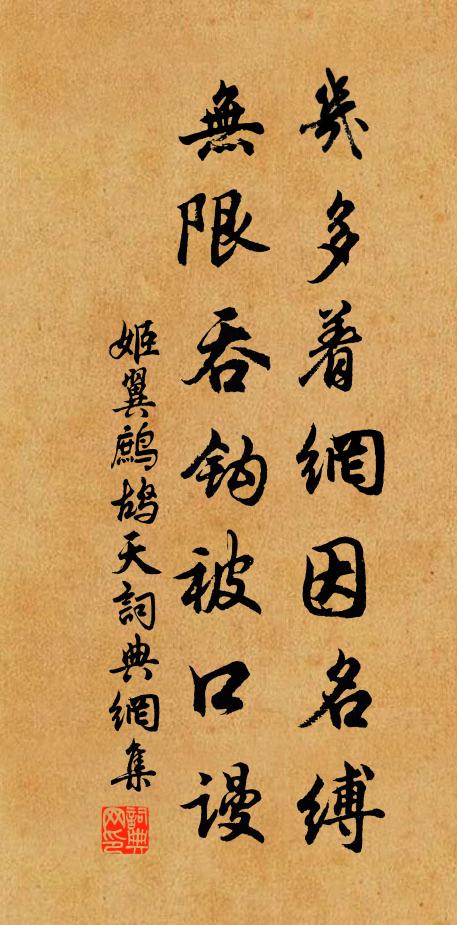 幾多着網因名縛
無限吞鈎被口謾
姬翼鷓鴣天詞典網集
詞典网印